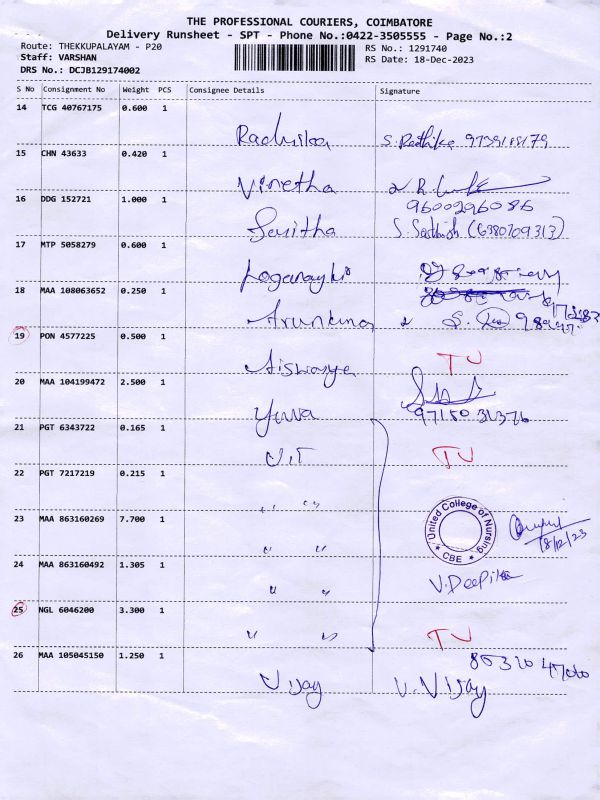 THE PROFESSIONAL COURIERS, COIMBATORE
Delivery Runsheet - SPT - Phone No.:0422-3505555 - Page No.:2
Route: THEKKUPALAYAM - P20
RS No.: 1291740
Staff: VARSHAN
RS Date: 18-Dec-2023
DRS No.: DCJB129174002
S No Consignment No Weight PCS Consignee Details Signature
14 TCG 40767175 0.600 1
S. Radhika
15 CHN 43633 0.420 1
Vinetha
16 DDG 152721 1.000 1
9600296086
Savitha S. Sathish (6380709313)
17 MTP 5058279 0.600 1
18 MAA 108063652 0.250 1
Arunkumar
19 PON 4577225 0.500 1
TU
20 MAA 104199472 2.500 1
Yuva 9715031376
21 PGT 6343722 0.165 1
TU
22 PGT 7217219 0.215 1
" "
United College of Nursing
* CBE *
18/12/23
23 MAA 863160269 7.700 1
" "
24 MAA 863160492 1.305 1
" " V. Deepika
25 NGL 6046200 3.300 1
" " TU
26 MAA 105045150 1.250 1
Vijay V. Vijay